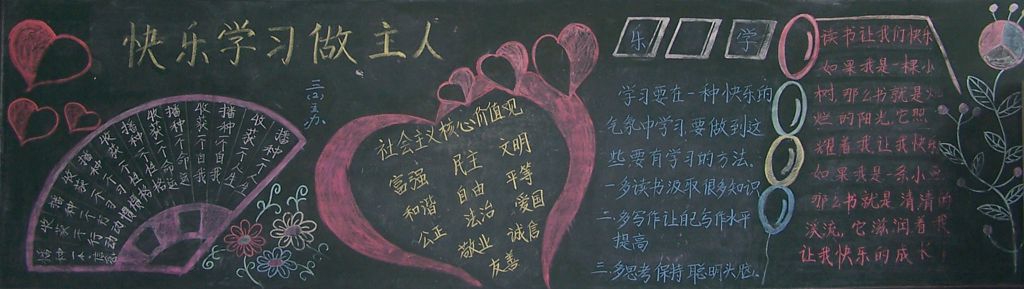 快乐学习做主人
三(5)办
播种一个信念
收获一个行动
播种一个行动
收获一个习惯
播种一个习惯
收获一个性格
播种一个性格
收获一个命运
播种一个命运
收获一个自我
播种一个自我
收获一个人生
播种一个人生
社会主义核心价值观
富强 民主 文明
和谐 自由 平等
公正 法治 爱国
敬业 诚信
友善
乐 学
学习要在一种快乐的
气氛中学习要做到这
些要有学习的方法.
一多读书汲取很多知识
二.多写作让自己写作水平
提高
三.多思考保持聪明头脑.
读书让我们快乐
如果我是一棵小
树,那么书就是火
烂的阳光,它照
耀着我让我快乐
如果我是一条小
那么书就是清清的
溪流,它滋润着我
让我快乐的成长!